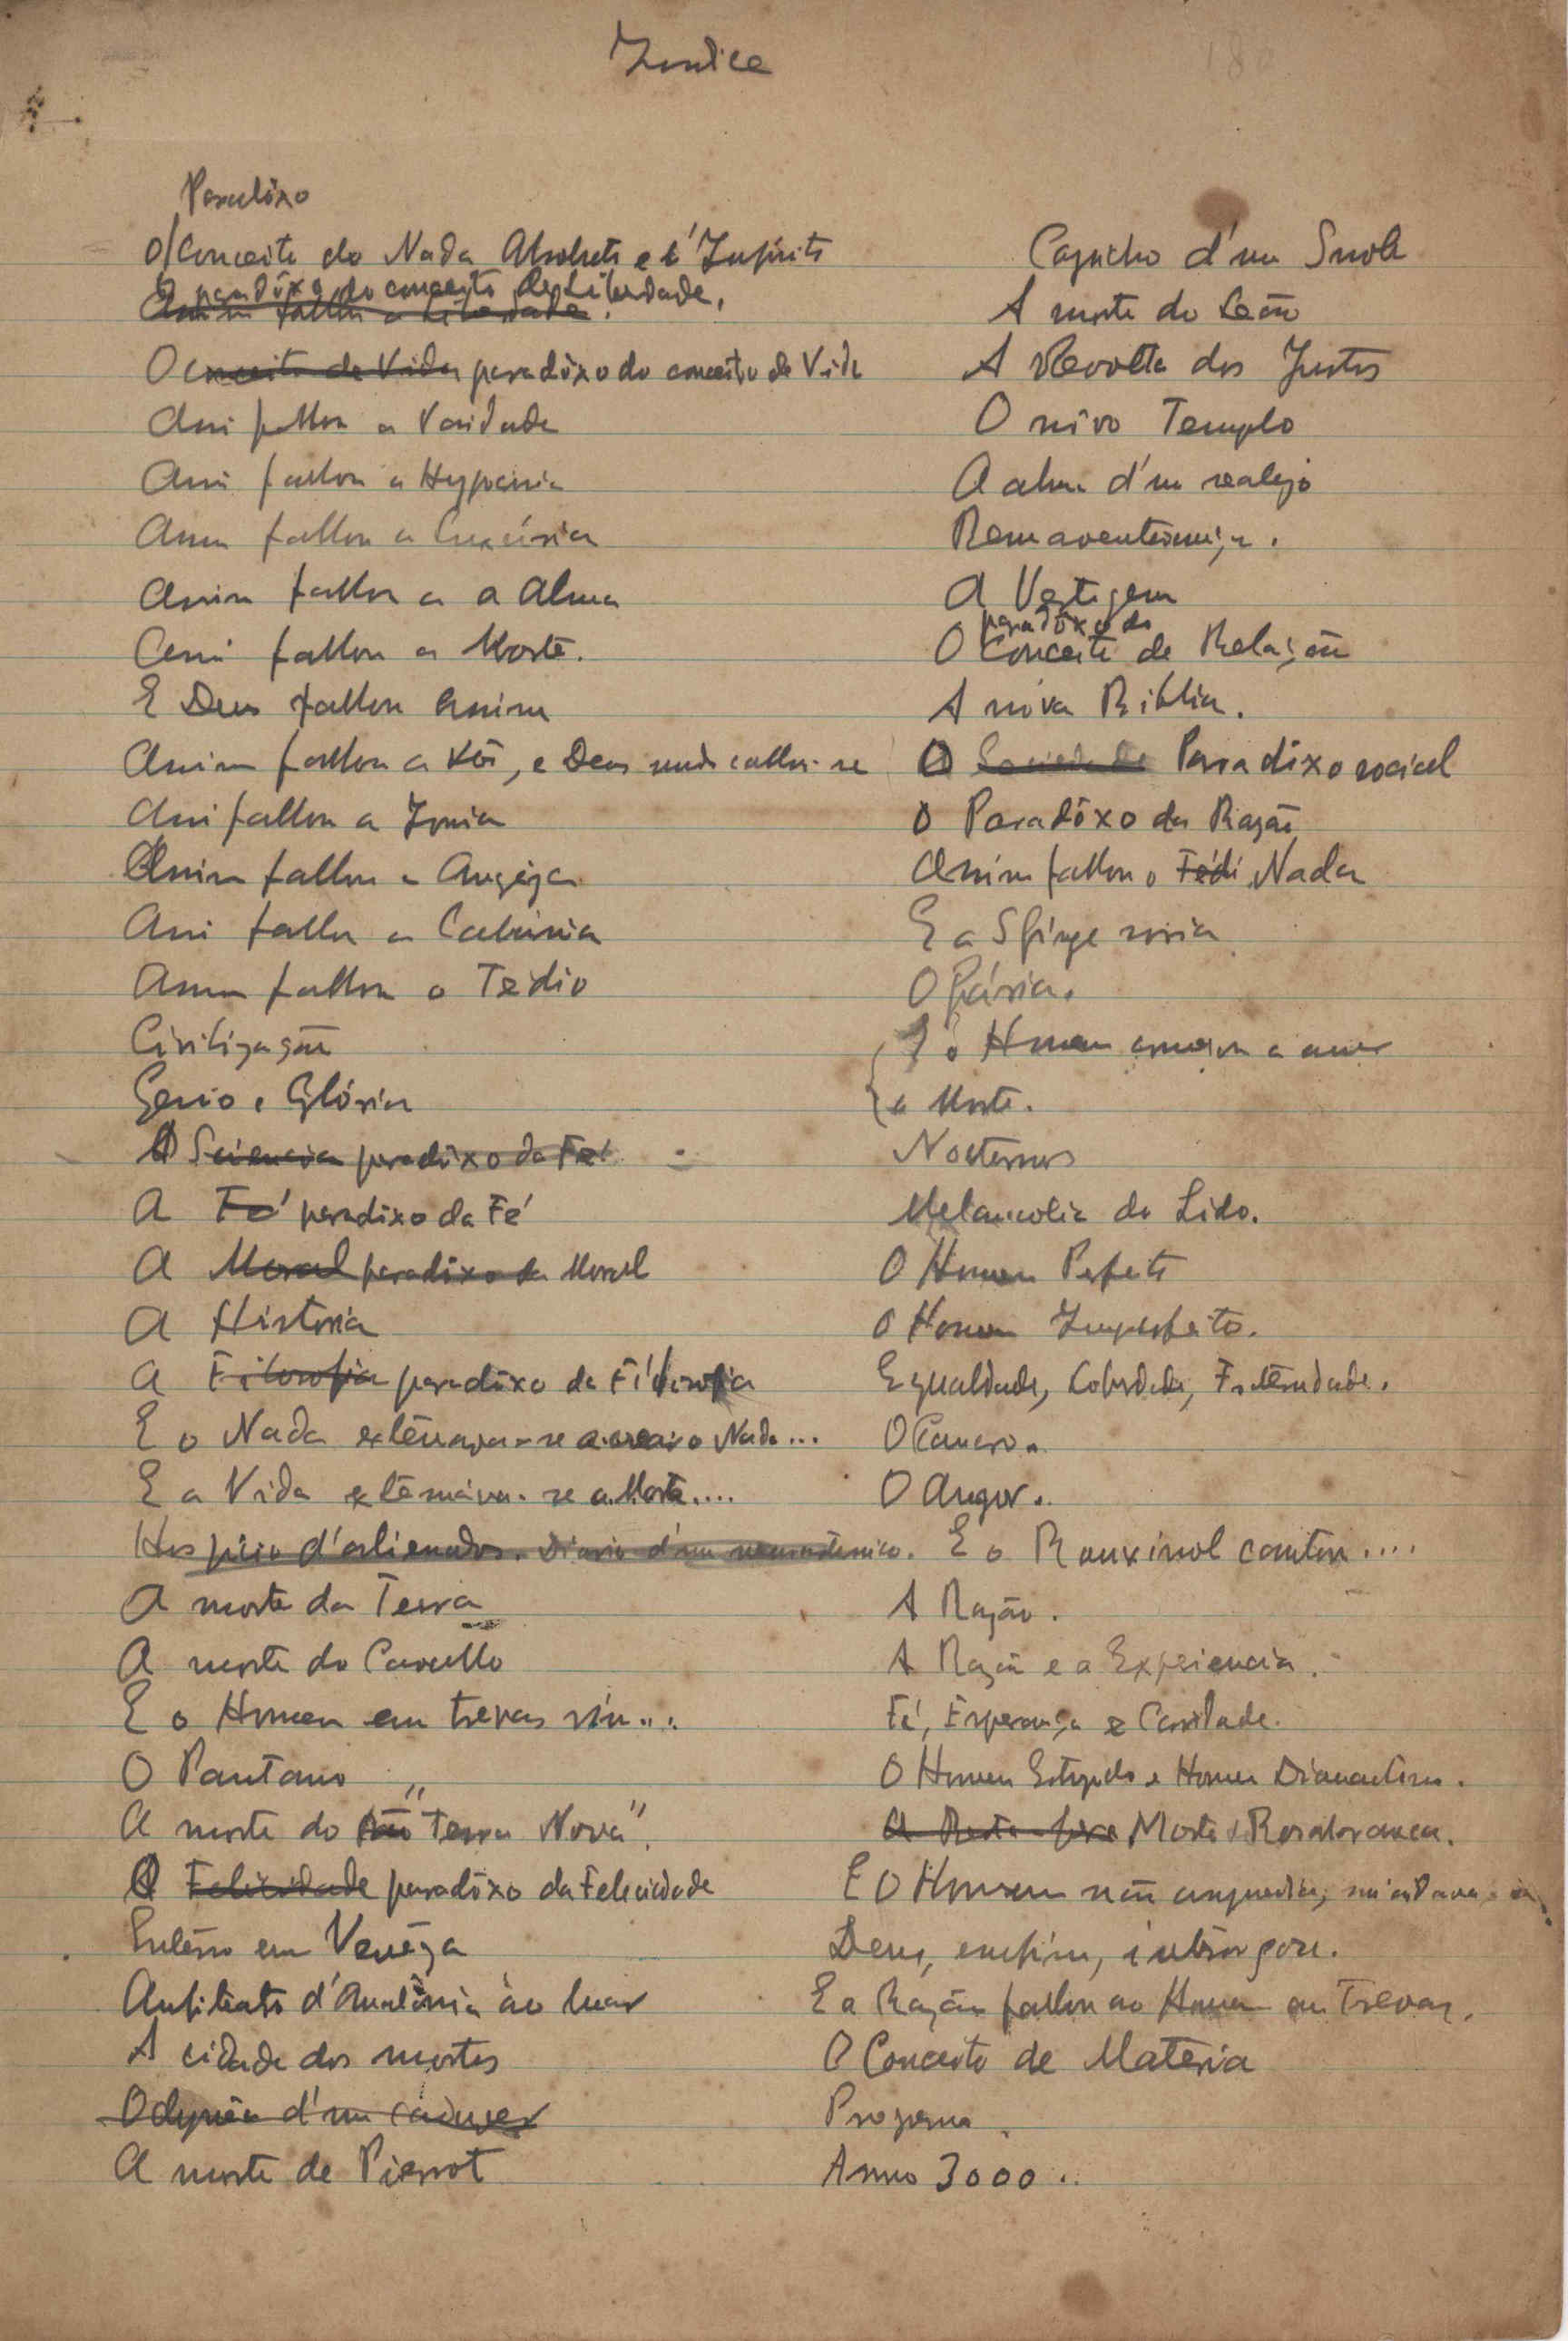 Indice
180
Paradôxo
O/Conceito do Nada Absoluto e d'Infinito
O paradôxo do conceito de Liberdade.
Assim fallou a Liberdade.
O conceito da Vida paradôxo do conceito de Vida
Assim fallou a Vaidade
Assim fallou a
Assim fallou a Luxúria
Assim fallou a a Alma
Assim fallou a Morte.
E Deus fallou assim
Assim fallou a , e Deus callou-se
Assim fallou a Ironia
Assim fallou a
Assim fallou a
Assim fallou o Tédio
Civilização
Genio e Glória
A Sciencia paradôxo da Fé
A Fé paradoxo da Fé
A Moral paradôxo da Moral
A Historia
A Filosofia paradôxo da Filosofia
E o Nada extenuava-se a crear o Nada...
E a Vida a Morte....
Hospicio d'alienados. Diario d'um neurastenico.
A morte da Terra
A morte do Cavallo
E o Homem em trevas riu...
O Pantano
A morte do "Terra Nova".
A Felicidade paradôxo da Felicidade
Entêrro em Venêza
Anfiteatro d'Anatómia ao luar
A cidade dos mortos
Odysséa d'um cadaver
A morte de Pierrot
Capricho d'um Snob
A morte do Leão
A Revolta dos Justos
O nôvo Templo
A alma d'um realejo
Bemaventurança.
A Vertigem
paradôxo do
O Conceito de Relação
A nóva Biblia.
O Sociedade Paradôxo social
O Paradôxo da Razão
Assim fallou o Tédi Nada
E a Sfinge
O Pária.
E o Homem começou a amar
a Morte.
Nocturnos
Melancolia do Lido.
O Homem Perfeito
O Homem Imperfeito.
Egualdade, Liberdade, Fraternidade.
O Cancro.
O Amor.
E o Rouxinol cantou....
A Razão.
A Razão e a Experiencia.
Fé, Esperança e Caridade.
O Homem Estupido e Homem
A Morte Rosabranca.
E O Homem não
Deus, emfim, interrogou.
E a Razão fallou ao Homem em Trevas.
O Conceito de Matéria
Programa.
Anno 3000..